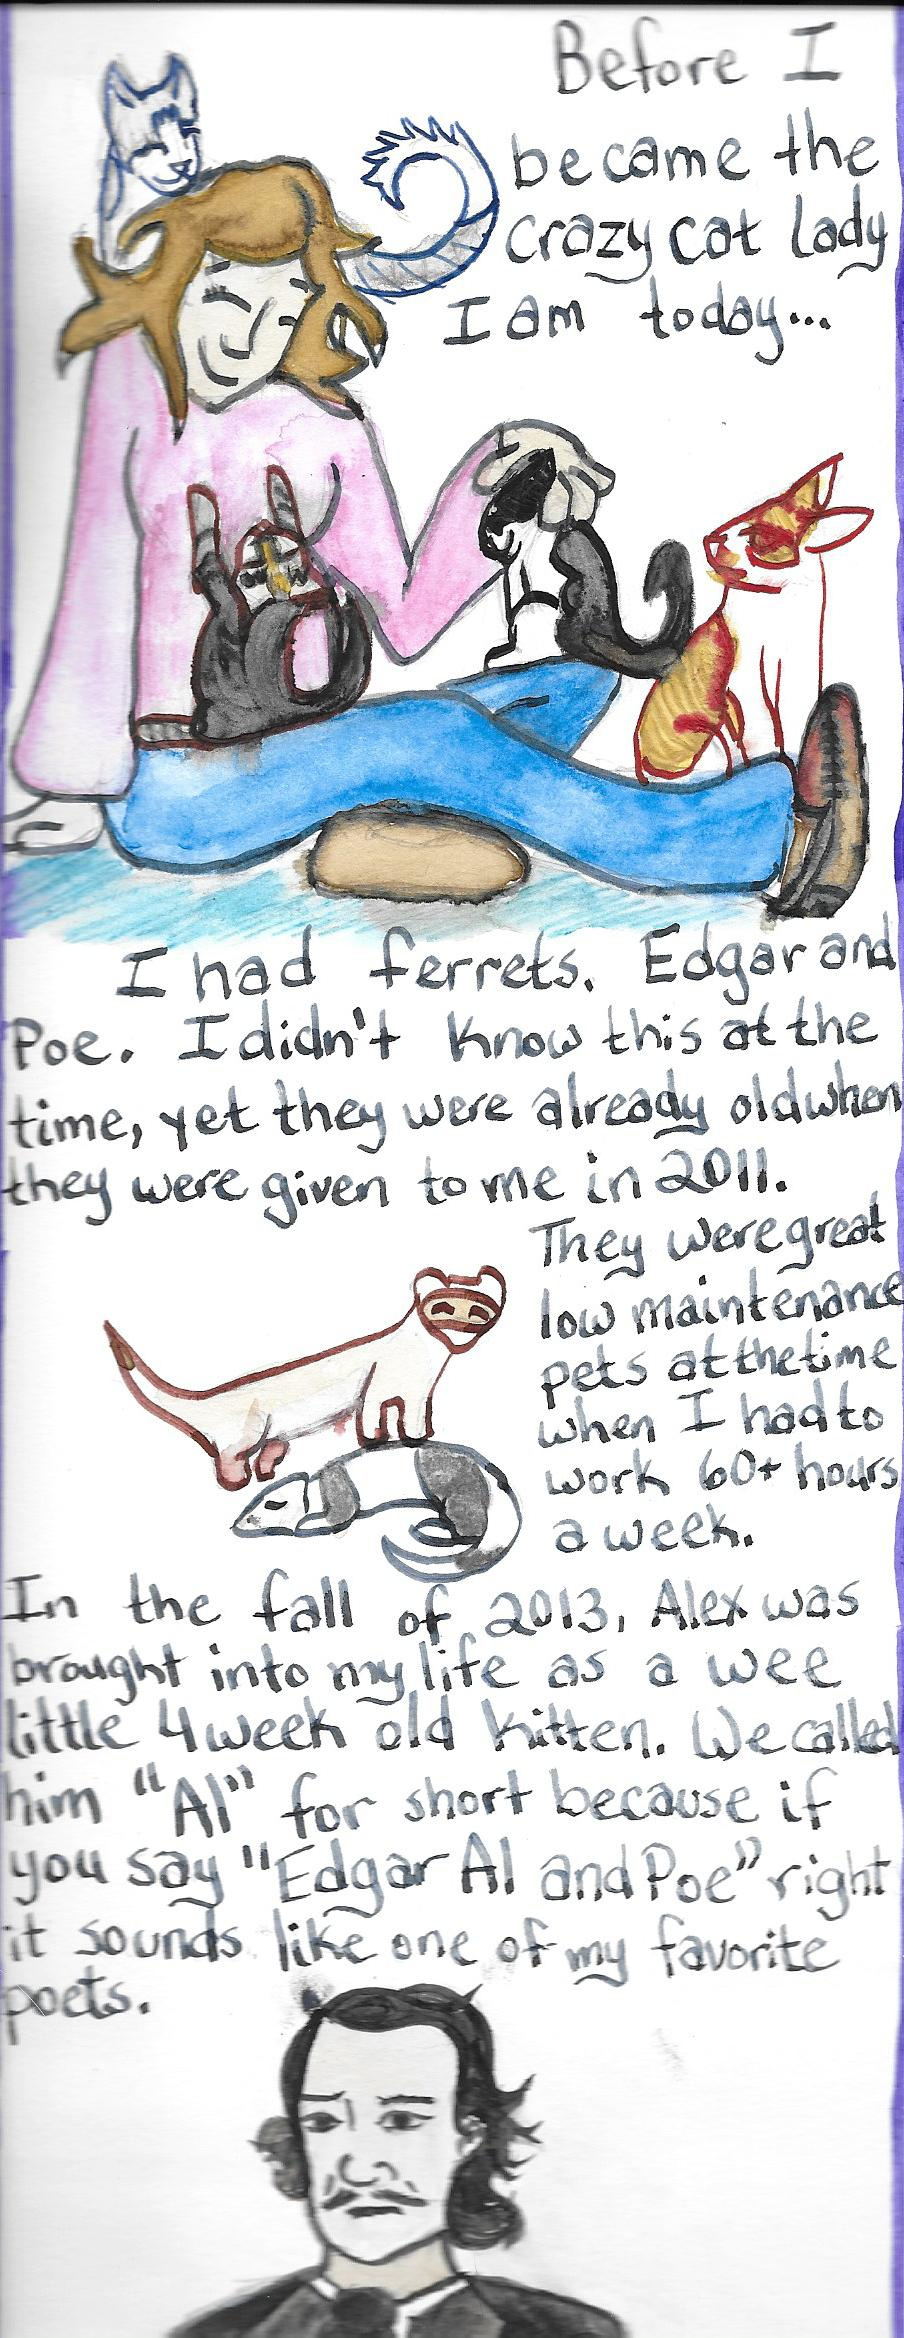 Before I
became the
crazy cat lady
I am today...
I had ferrets. Edgar and
Poe. I didn't know this at the
time, yet they were already old when
they were given to me in 2011.
They were great
low maintenance
pets at the time
when I had to
work 60+ hours
a week.
In the fall of 2013, Alex was
brought into my life as a wee
little 4 week old kitten. We called
him "Al" for short because if
you say "Edgar Al and Poe" right
it sounds like one of my favorite
poets.